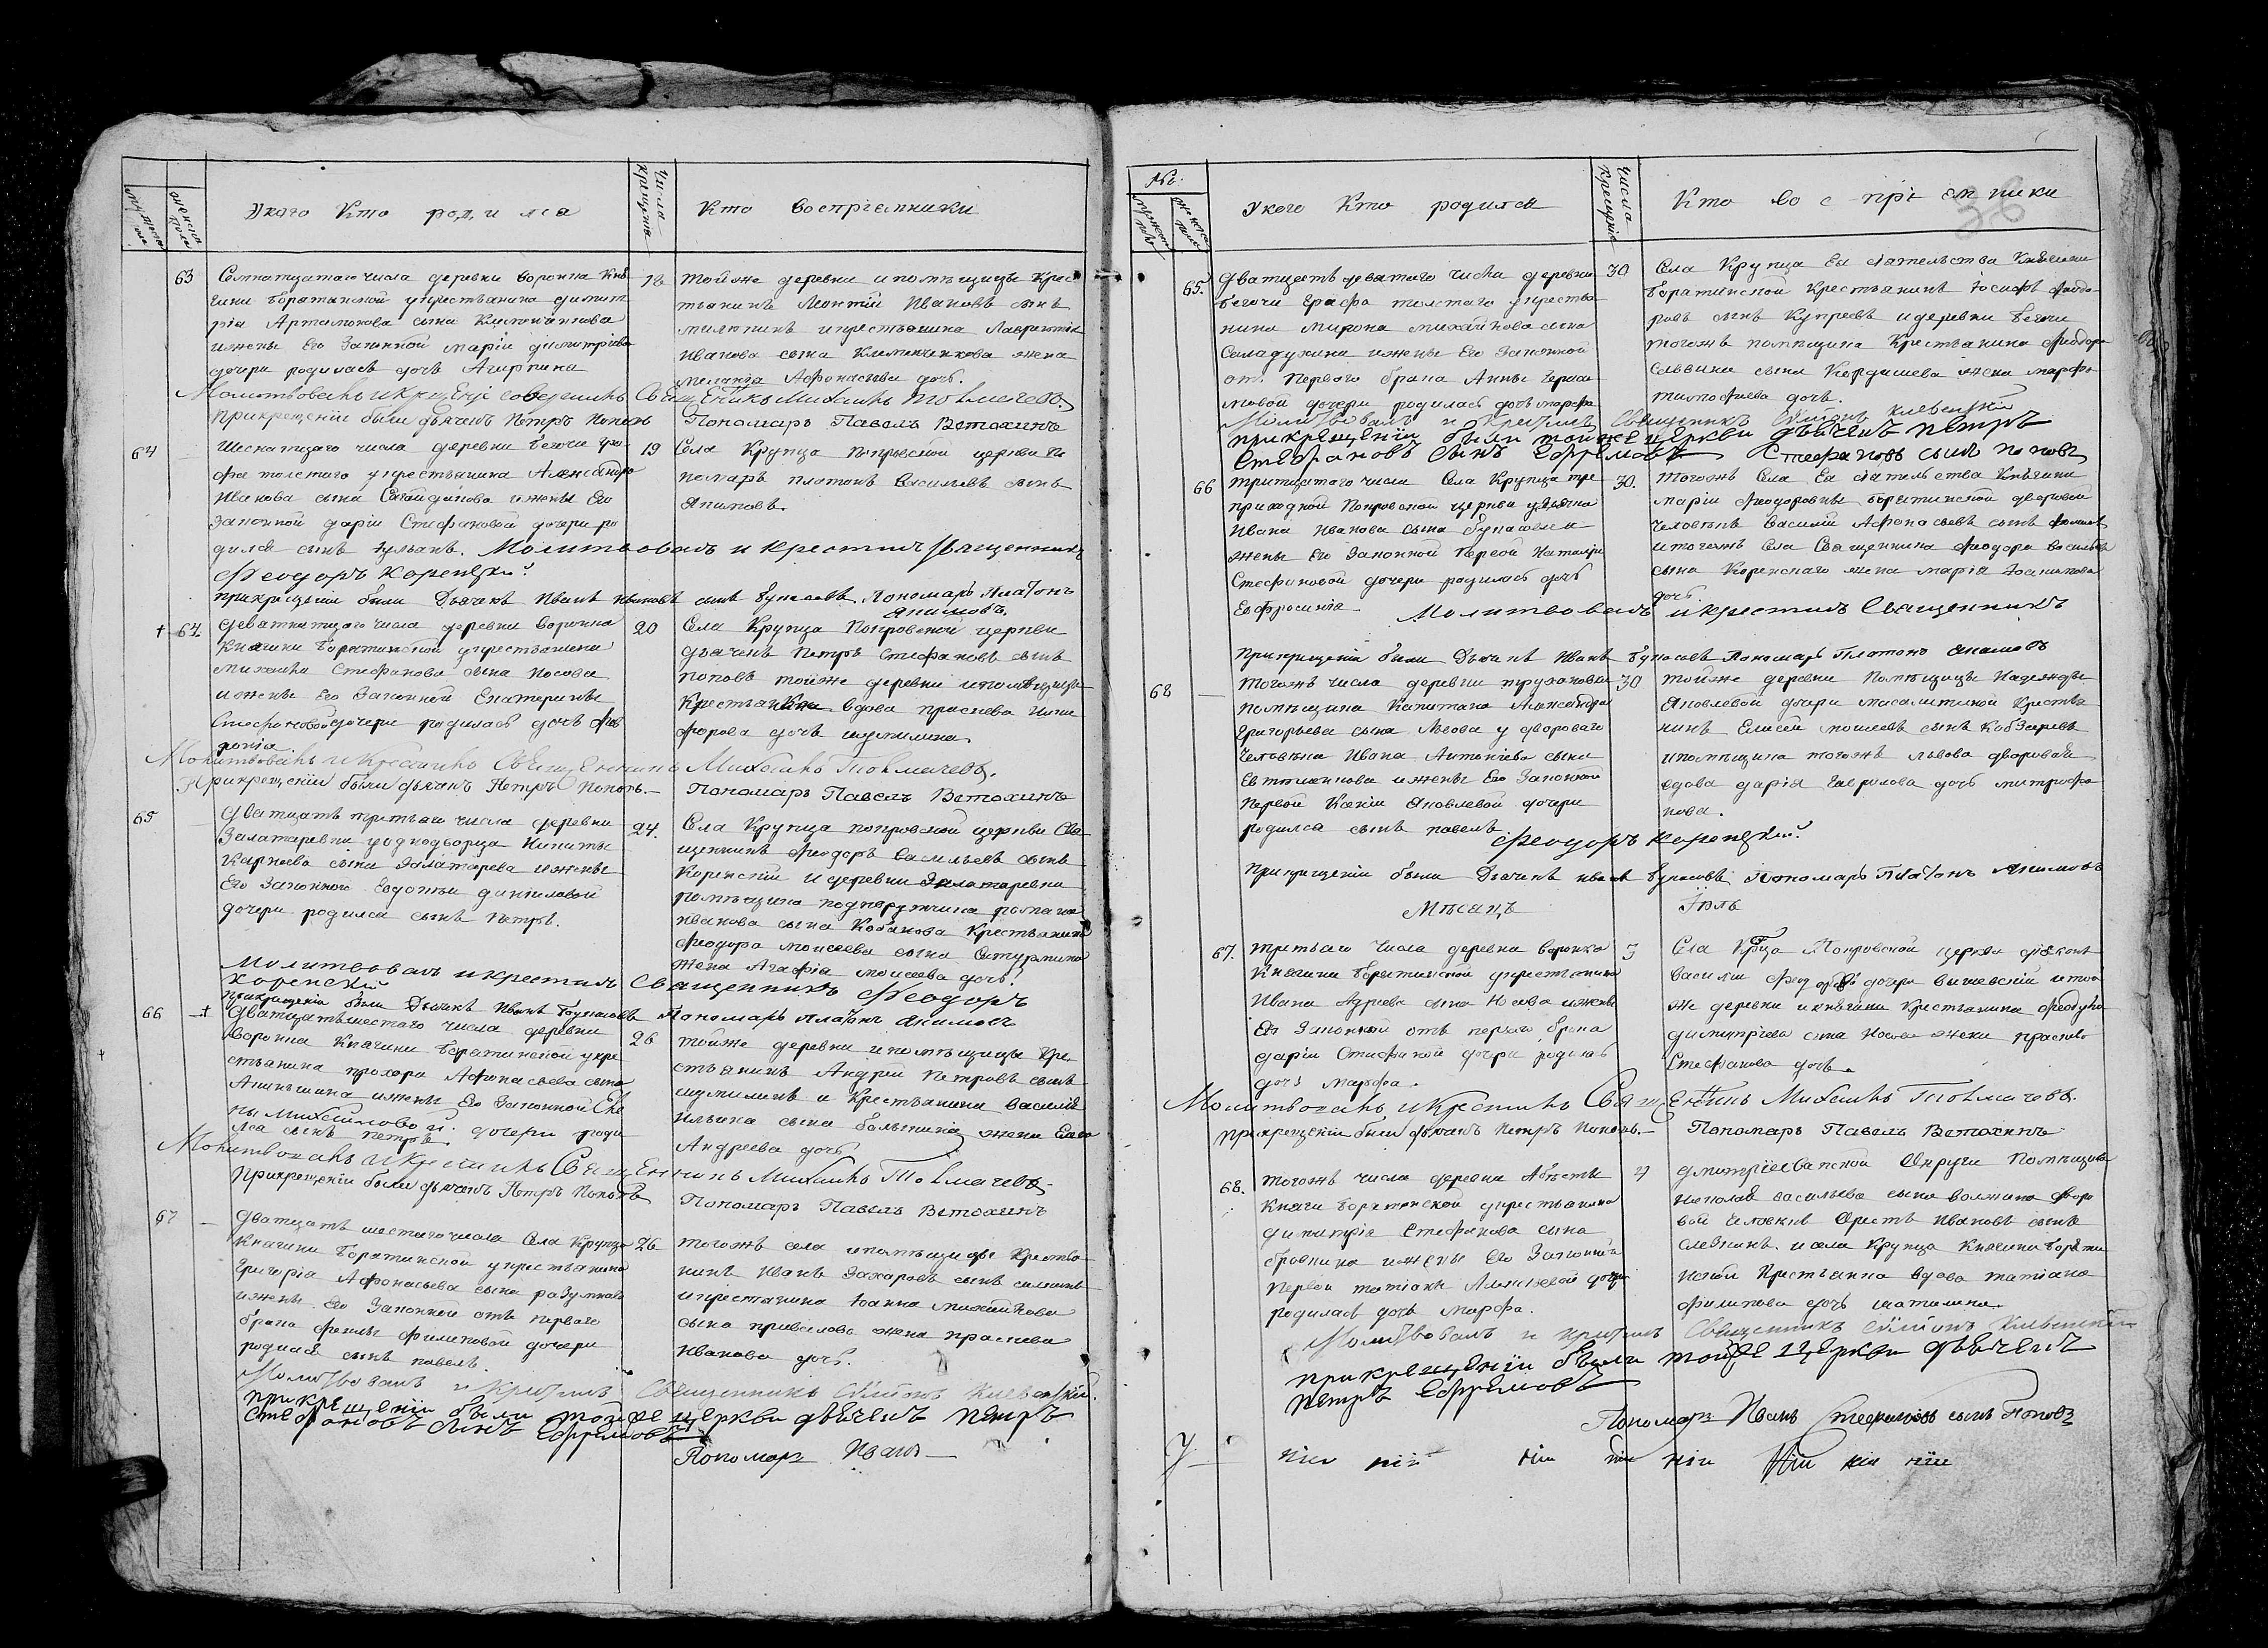 мужеска пола
женска пола
Укого Кто родился
Числа крещения
Кто Восприемники
63
Семнатцатого числа деревни воронка Кня
гини боратинской укрестьянина димит
рія Артамонова сына
ижены Его Законной маріи димитріева
дочери родилась дочь Агирпина
18
тойже деревни ипомѣщицы Крес
тьянинъ Леонтій Ивановъ сынъ
икрестьянина Лаврентія
иванова сына Клименчикова жена
меланья Афонасьева дочь.
Молитвовалъ икрещеніе совершилъ Священикъ Михаилъ Товмачевъ
прикрещеніи были дьячекъ Петръ Поповъ Пономарь Павелъ Ветохинъ
64
Шеснатцаго числа деревни бегочи гра
фа толстаго укрестьянина Александра
Иванова сына ижены Его
Законной даріи Стефановой дочери ро
дился сынъ ульянъ. Молитвовалъ и крестилъ священникъ
Феодоръ Коренскій
19
Села Крупца Покровской церкви По
номарь платонъ Васильевъ сынъ
Якимовъ.
прикрещеніи были Дьячекъ Иванъ ивановъ сынъ Бунасевъ. Пономарь Платонъ
Якимовъ.
+ 64
девятнатцаго числа деревни воронка
Княгини боратинской укрестьянина
Михаила Стефанова сына Носова
ижены Его Законной Екатерины
Стефановой дочери родилась дочь Фев
ронія
20
Села Крупца Покровской церкви
дьячекъ Петръ Стефановъ сынъ
поповъ тойже деревни ипомѣщицы
Крестьянка вдова праскева Ники
форова дочь шумилина
Молитвовалъ икрестилъ Священникъ Михаилъ Товмачевъ.
Прикрещеніи были дьячекъ Петръ Поповъ.— Пономарь Павелъ Ветохинъ
65
дватцать третьяго числа деревни
Залатаревки уоднодворца Никиты
Карнеева сына Залатарева ижены
Его Законного Евдокіи даниловой
дочери родился сынъ Петръ.
24.
Села Крупца покровской церкви Свя
щенникъ Феодоръ Васильевъ сынъ
Коренскій идеревни Залатаревки
помѣщика подпоручика романа
иванова сына Кобанова Крестьянина
Феодора моисеева сына
жена Агафія моисеева дочь.
Молитвовалъ икрестилъ Священникъ Феодоръ
Коренскій
Прикрещеніи были Дьячекъ Иванъ Бунасевъ Пономарь Платонъ Якимовъ
66 — +
дватцатьшестого числа деревни
воронка Княгини боратинской укре
стьянина прохора Афонасьева сына
Аникушина ижены Его Законной Еле
ны михайловой дочери роди
лся сынъ петръ.
26
тойже деревни ипомѣщицы Кре
стьянинъ Андрей Петровъ сынъ
шумилинъ и Крестьянина василія
ильина сына жена Елена
Андреева дочь
Молитвовалъ икрестилъ Священникъ Михаилъ Товмачевъ
Прикрещеніи были дьячекъ Петръ Поповъ Пономарь Павелъ Ветохинъ
67 —
дватцать шестого числа Села Крупца
Княгини боратинской укрестьянина
Григорія Афонасьева сына
ижены Его Законной отъ перваго
брака Феклы Филиповой дочери
родился сынъ павелъ.
26
тогожъ села ипомѣщицы Крестья
нинъ Иванъ Захаровъ сынъ
икрестьянина Іоанна михайлова
сына привалова жена праскева
Иванова дочь.
Молитвовалъ и крестилъ Священникъ Сѵмеонъ Киевскій.
прикрещеніи были тойже церкви дьячекъ петръ
Стефановъ сынъ Ефремовъ
Пономарь Иванъ
№.
мужеска пола
женска пола
Укого Кто родился
Числа крещенія
Кто восприемники
38
65.
дватцать девятого числа деревни
бегочи Графа толстаго укрестья
нина мирона михайлова сына
Саладухина ижены Его Законной
отъ Перваго брака Анны Гераси
мовой дочери родилась дочь марфа
30
Села Крупца Ея сіятельства Княгини
боратинской Крестьянинъ Іосифъ Феодо
ровъ сынъ Купреевъ идеревни бегочи
тогожъ помѣщика Крестьянина Феодора
Савина сына Кордашева жена марфа
тимофеева дочь.
Молитвовалъ и крестилъ Священникъ Сѵмеонъ Киевскій
прикрещеніи были тойже церкви дьячекъ петръ
Стефановъ сынъ Ефремовъ Стефановъ сынъ поповъ
66
тритцатого числа Села Крупца пре
приходной Покровской церкви удьячка
Ивана Иванова сына Бунасева
жены Его Законной Первой Наталіи
Стефановой дочери родилась дочь
Евфросинія
30.
тогожъ Села Ея сіятельства Княгини
маріи Феодоровны боратинской дворовой
человѣкъ Василій Афонасьевъ сынъ
итогожъ Села Священника Феодора васильева
сына Коренскаго жена марія
дочь
Молитвовалъ икрестилъ Священникъ
Прикрещеніи были Дьячекъ Иванъ Бунасевъ Пономарь Платонъ Якимовъ
68 —
тогожъ числа деревни
помѣщика Капитана Александра
Григорьева сына Львова у двороваго
Человѣка Ивана Антоніева сына
ижены Его Законной
Первой Ксеніи Яковлевой дочери
родился сынъ павелъ
30
тойже деревни Помѣщицы Надежды
Яковлевой дочери Крестья
нинъ Елисей моисеевъ сынъ Кобзаревъ
ипомѣщика тогожъ Львова дворовая
вдова дарія Гаврилова дочь митрофа
нова.
Феодоръ Коренскій
Прикрещеніи были Дьячекъ иванъ Бунасевъ Пономарь Платонъ Якимовъ
Мѣсяцъ Іюль
67.
третьяго числа деревни воронка
Княгини боратинской укрестьянина
Ивана сына Носова ижены
Его Законной отъ перваго брака
даріи Стефановой дочери родилась
дочь марфа.
3
Села Крупца Покровской церкви дьяконъ
василій
же деревни икнягини Крестьянина
димитріева сына Носова жена праскева
Стефанова дочь.
Молитвовалъ икрестилъ Священникъ Михаилъ Товмачевъ.
прикрещеніи были дьячекъ Петръ Поповъ.— Пономарь Павелъ Ветохинъ
68.
тогожъ числа деревни
Княги боратинской укрестьянина
димитрія Стефанова сына
ижены Его Законной
Первой татіаны Алексѣевой дочери
родилась дочь марфа.
4
дмитріевской Округи Помѣщика
николая васильева сына волжина дворо
вой человѣкъ Орестъ Ивановъ сынъ
исела Крупца Княгини борати
нской Крестьянка вдова татіана
филипова дочь шатилина.
Молитвовалъ и крестилъ Священникъ Сѵмеонъ Киевскій
прикрещеніи были тойже церкви дьячекъ
петръ Ефремовъ
Пономарь Иванъ Стефановъ сынъ Поповъ